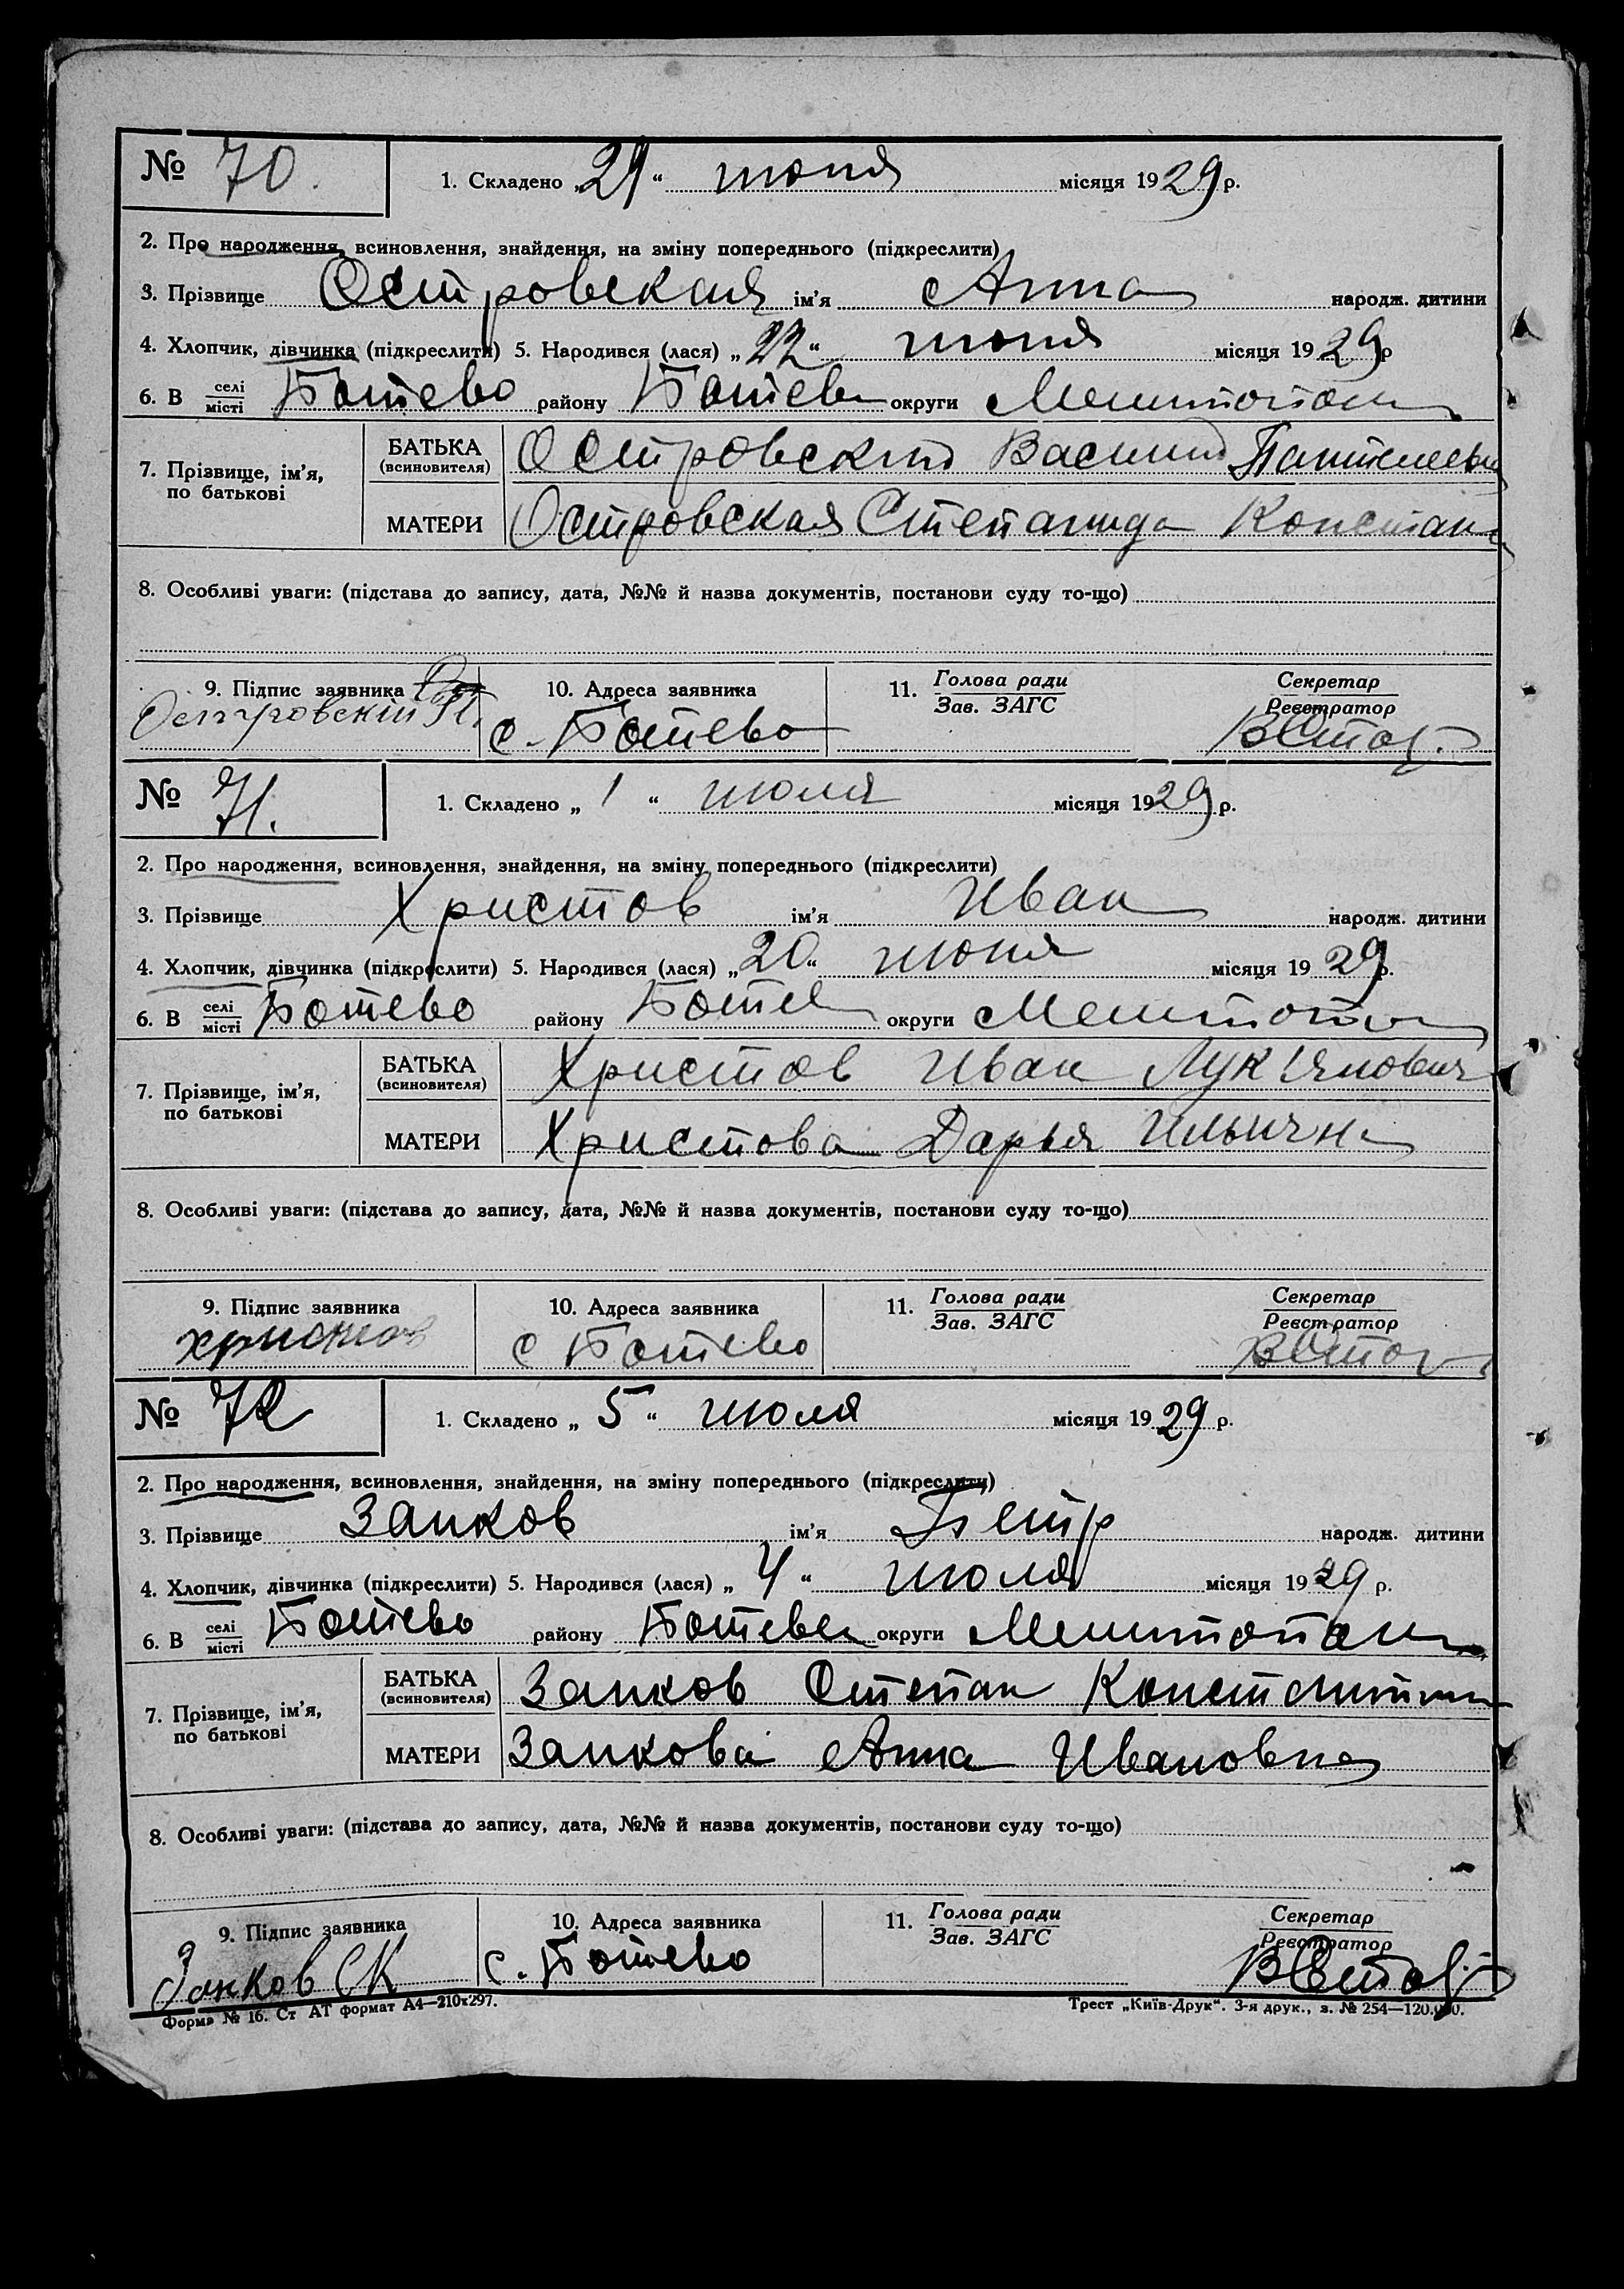 № 70. 1. Складено „29“ июня місяця 1929 р.
2. Про народження, всиновлення, знайдення, на зміну попереднього (підкреслити)
3. Прізвище Островская ім'я Анна народж. дитини
4. Хлопчик, дівчинка (підкреслити) 5. Народився (лася) „22“ июня місяця 1929 р
6. В селі місті Ботево району Ботев округи Мелитопол
7. Прізвище, ім'я, по батькові БАТЬКА (всиновителя) Островский Василий
МАТЕРИ Островская Степанида Констан
8. Особливі уваги: (підстава до запису, дата, №№ й назва документів, постанови суду то-що)
9. Підпис заявника 10. Адреса заявника 11. Голова ради Зав. ЗАГС Секретар Реєстратор
Островскій с. Ботево
№ 71. 1. Складено „1“ июля місяця 1929 р.
2. Про народження, всиновлення, знайдення, на зміну попереднього (підкреслити)
3. Прізвище Христов ім'я Иван народж. дитини
4. Хлопчик, дівчинка (підкреслити) 5. Народився (лася) „20“ июня місяця 1929 р.
6. В селі місті Ботево району Ботев округи Мелитопол
7. Прізвище, ім'я, по батькові БАТЬКА (всиновителя) Христов Иван Лукьянович
МАТЕРИ Христова Дарья Ильична
8. Особливі уваги: (підстава до запису, дата, №№ й назва документів, постанови суду то-що)
9. Підпис заявника 10. Адреса заявника 11. Голова ради Зав. ЗАГС Секретар Реєстратор
христов с Ботево
№ 72 1. Складено „5“ июля місяця 1929 р.
2. Про народження, всиновлення, знайдення, на зміну попереднього (підкреслити)
3. Прізвище Занков ім'я Петр народж. дитини
4. Хлопчик, дівчинка (підкреслити) 5. Народився (лася) „4“ июля місяця 1929 р.
6. В селі місті Ботево району Ботевск округи Мелитопол
7. Прізвище, ім'я, по батькові БАТЬКА (всиновителя) Занков Степан Константин
МАТЕРИ Занкова Анна Ивановна
8. Особливі уваги: (підстава до запису, дата, №№ й назва документів, постанови суду то-що)
9. Підпис заявника 10. Адреса заявника 11. Голова ради Зав. ЗАГС Секретар Реєстратор
Занков СК с. Ботево
Форма № 16. Ст АТ формат А4—210x297. Трест „Київ-Друк“. 3-я друк., з. № 254—120.000.